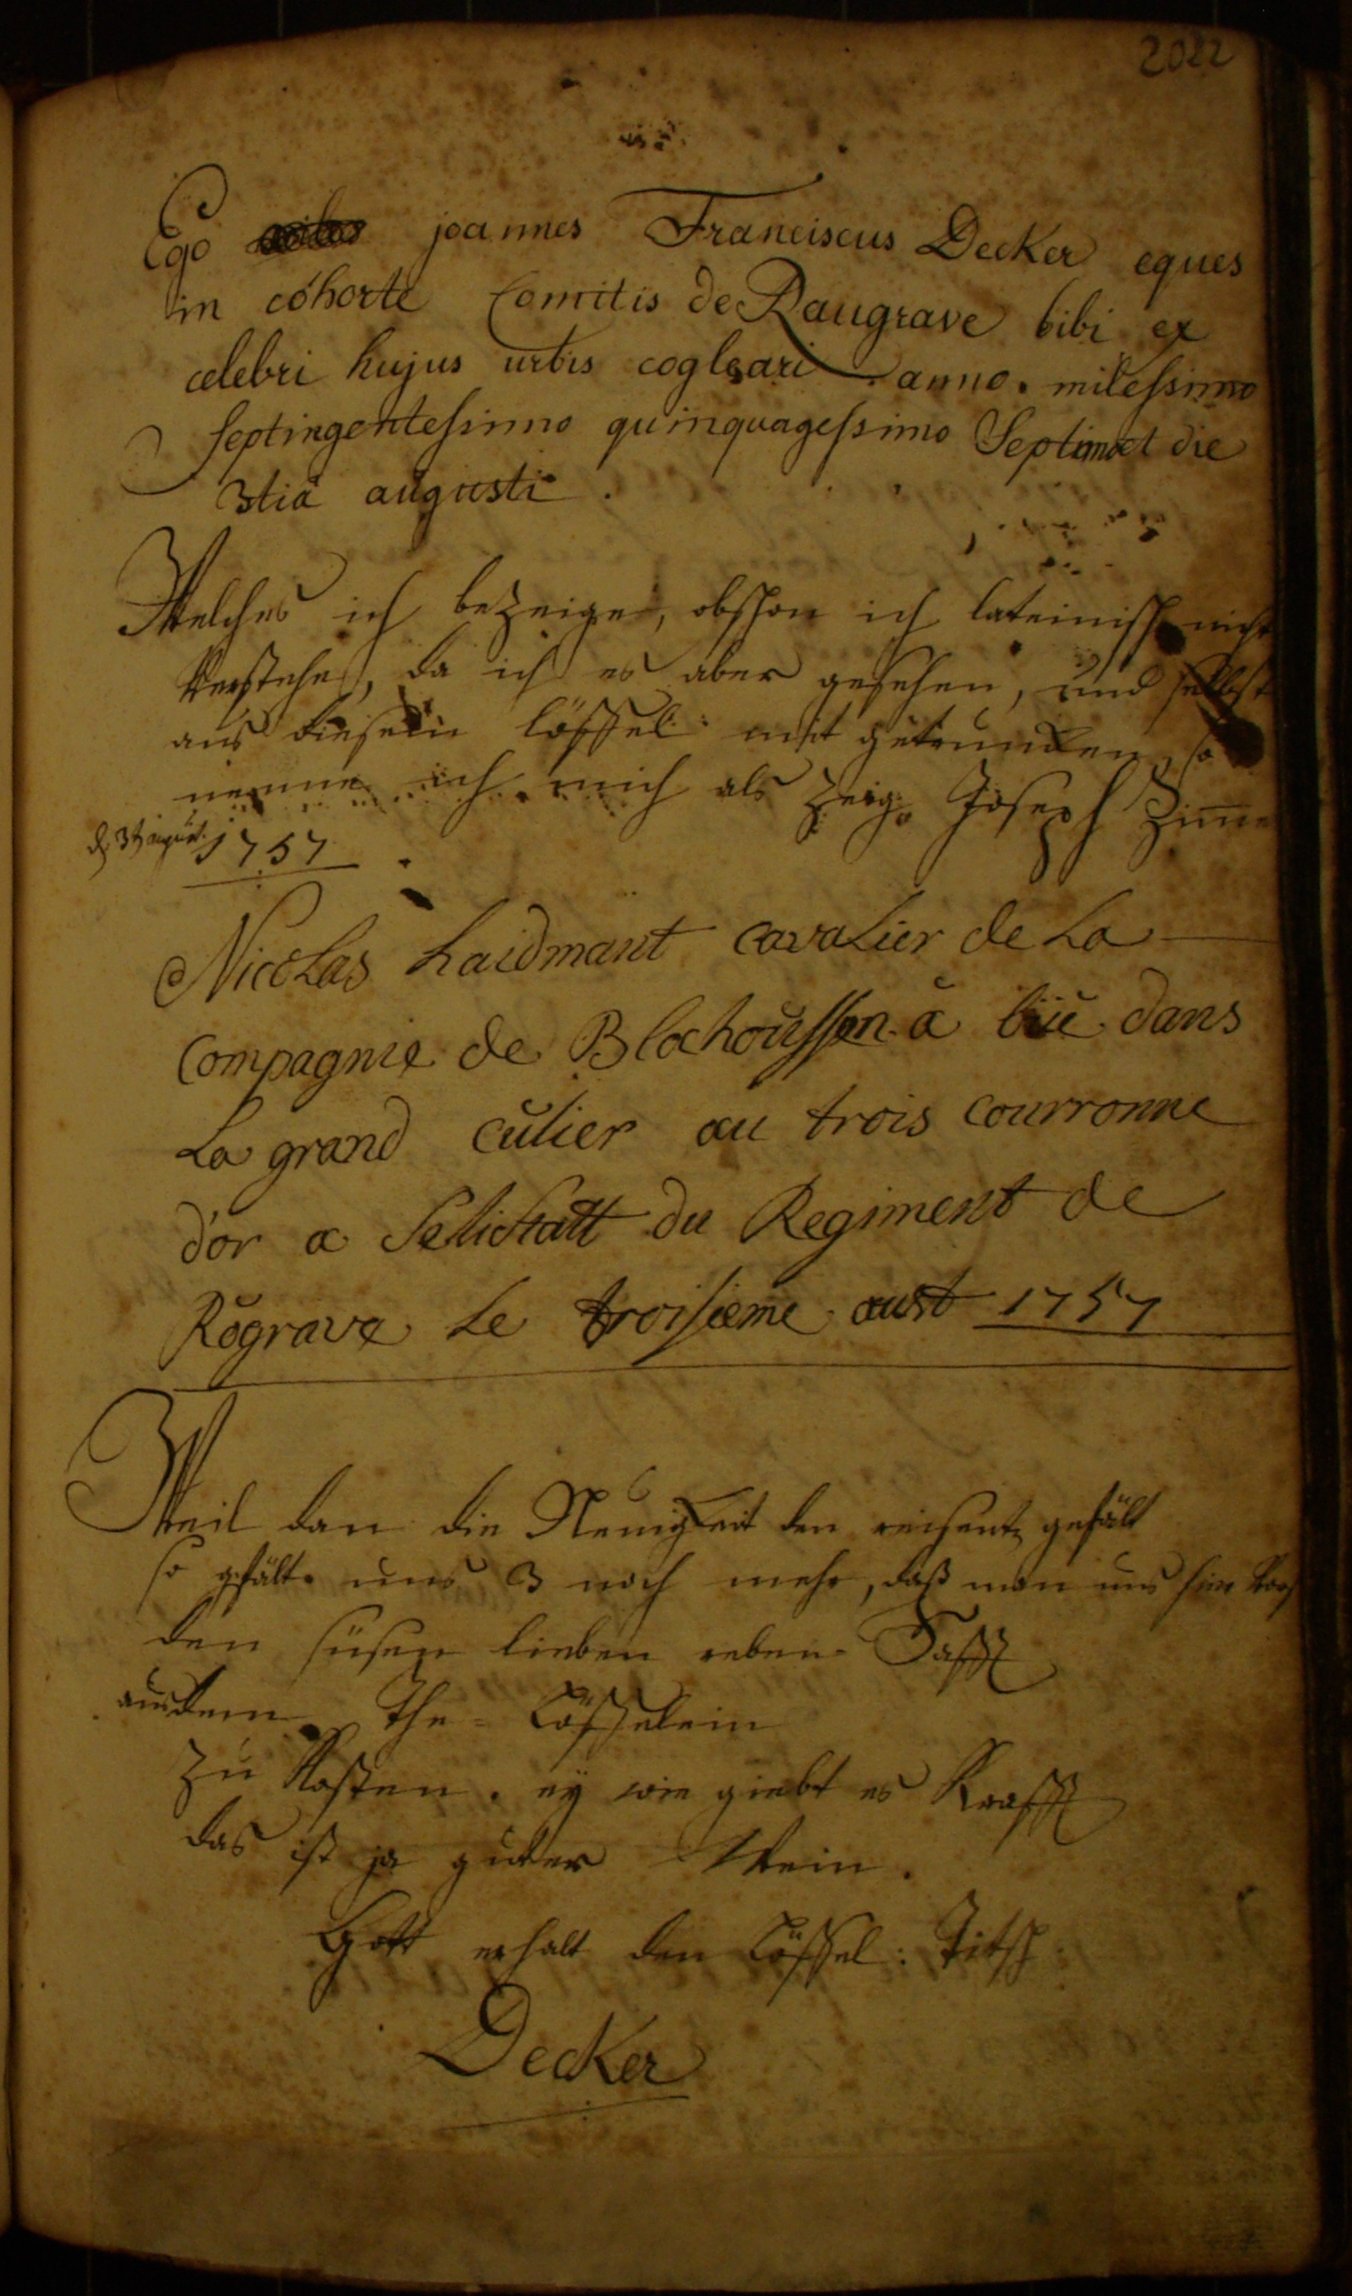 2022
Ego joannes Franciscus Decker eques
in cohorte Comitis de Raugrave bibi ex
celebri hujus urbis cogleari anno. milessimo
septingentessimo quinquagessimo Septimo et die
3tiâ augusti.
Welches ich bezeige, obschon ich lateinisch nicht
Verstehe, da ich es aber gesehen, und selbst
aus diesem löffel mit getruncken, so
nenne ich mich als zeig. Joseph Zimme
d. 3t. august. 1757.
Nicolas haidmant cavaLier de La
Compagnie de Blochoussen à büe dans
La grand culier au trois courronne
d'or a Selistatt du Regiment de
Rograve Le troisieme aust 1757
Weil dan die Neuigkeit den reisent gefält
so gefält uns 3 noch mehr, daß man uns hier
den süsen lieben reben-Safft
aus dem The-Löffelein
zu Kosten. ey wie giebt es Krafft
das ist ja guter Wein.
Gott erhalt den Löffel: Titsch.
Decker